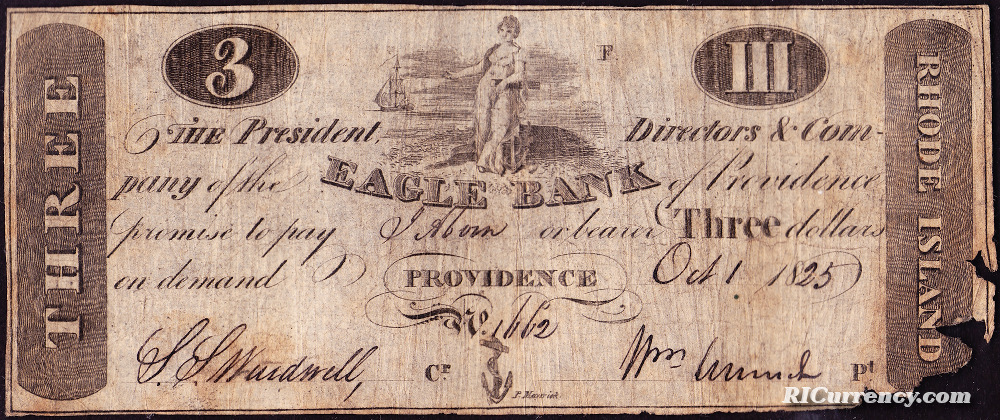 THREE
3
F
III
RHODE ISLAND
THE President, Directors & Com-
pany of the EAGLE BANK of Providence
promise to pay or bearer Three dollars
on demand PROVIDENCE Oct 1 1825
No. 1662
S. S. Wardwell, Cr. Wm Pt.
RICurrency.com